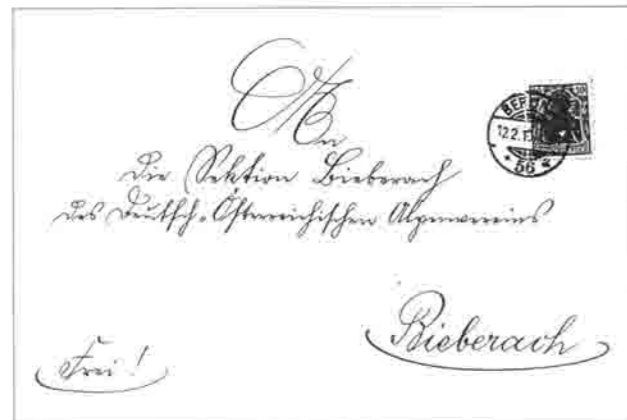 An
die Sektion Bieberach
des Deutsch-Österreichischen Alpenvereins
Bieberach
Frei!
BERLIN
12.2.1
56